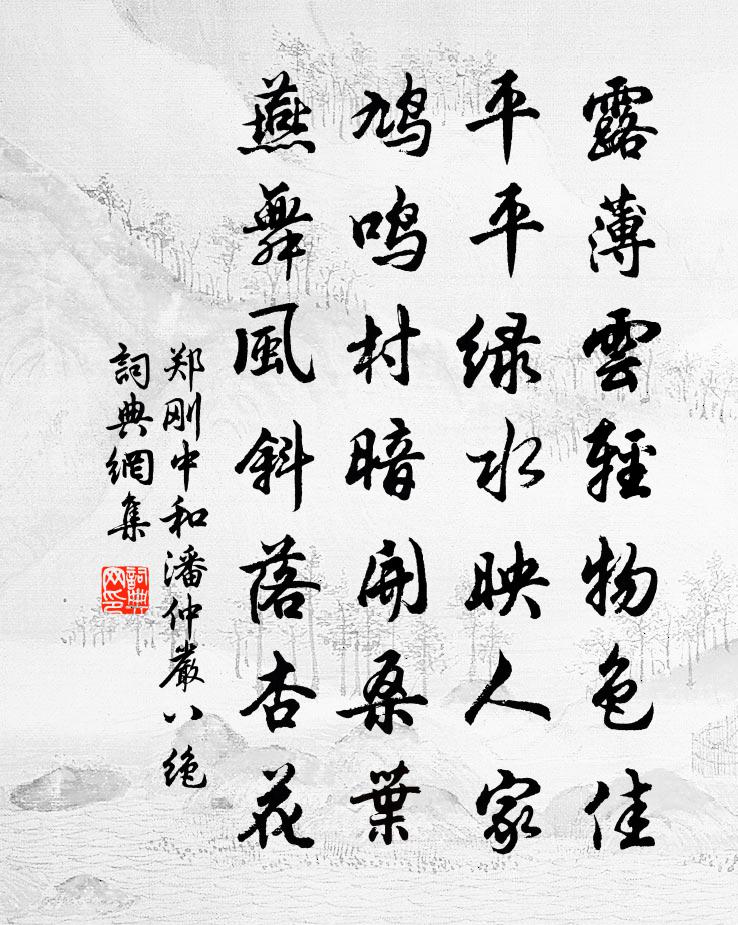 露薄雲輕物色佳
平平绿水映人家
鸠鸣村暗開桑葉
燕舞風斜落杏花
郑刚中和潘仲嚴八绝
詞典網集
詞典网印